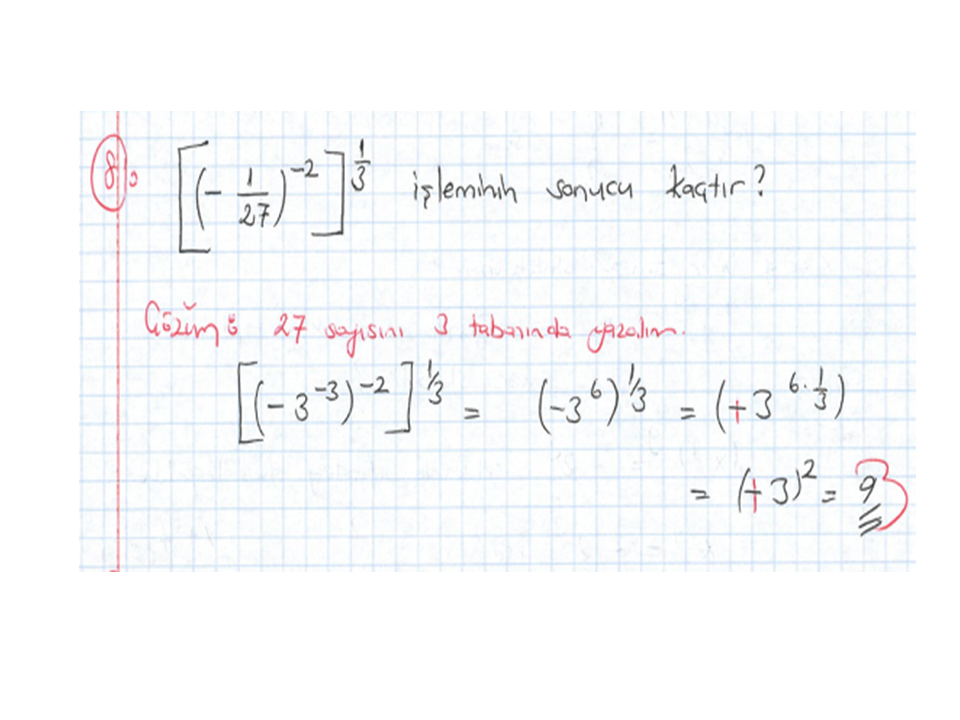 8. [(-1/27)^-2]^1/3 işleminin sonucu kaçtır?
Çözüm: 27 sayısını 3 tabanında yazalım.
[(-3^-3)^-2]^1/3 = (-3^6)^1/3 = (+3^6·1/3)
= (+3)^2 = 9